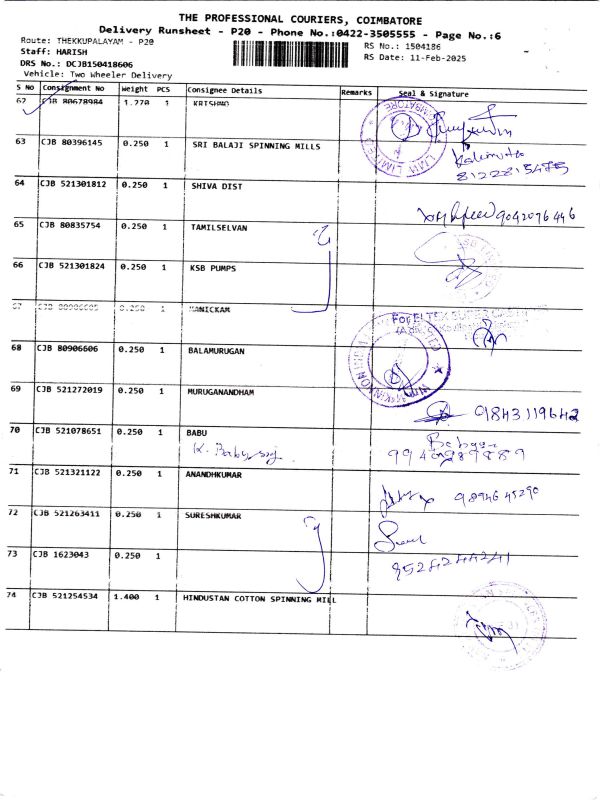 THE PROFESSIONAL COURIERS, COIMBATORE
Delivery Runsheet - P20 - Phone No.:0422-3505555 - Page No.:6
Route: THEKKUPALAYAM - P20
RS No.: 1504186
Staff: HARISH
RS Date: 11-Feb-2025
DRS No.: DCJB150418606
Vehicle: Two Wheeler Delivery
S No Consignment No Weight PCS Consignee Details Remarks Seal & Signature
62 CJB 80678984 1.270 1 KRISHNO
63 CJB 80396145 0.250 1 SRI BALAJI SPINNING MILLS
64 CJB 521301812 0.250 1 SHIVA DIST
9042076446
65 CJB 80835754 0.250 1 TAMILSELVAN
66 CJB 521301824 0.250 1 KSB PUMPS
67 CJB 80906605 0.250 1 MANICKAM
68 CJB 80906606 0.250 1 BALAMURUGAN
69 CJB 521272019 0.250 1 MURUGANANDHAM
9843119642
70 CJB 521078651 0.250 1 BABU
71 CJB 521321122 0.250 1 ANANDHKUMAR
9894645290
72 CJB 521263411 0.250 1 SURESHKUMAR
73 CJB 1623043 0.250 1
74 CJB 521254534 1.400 1 HINDUSTAN COTTON SPINNING MILL